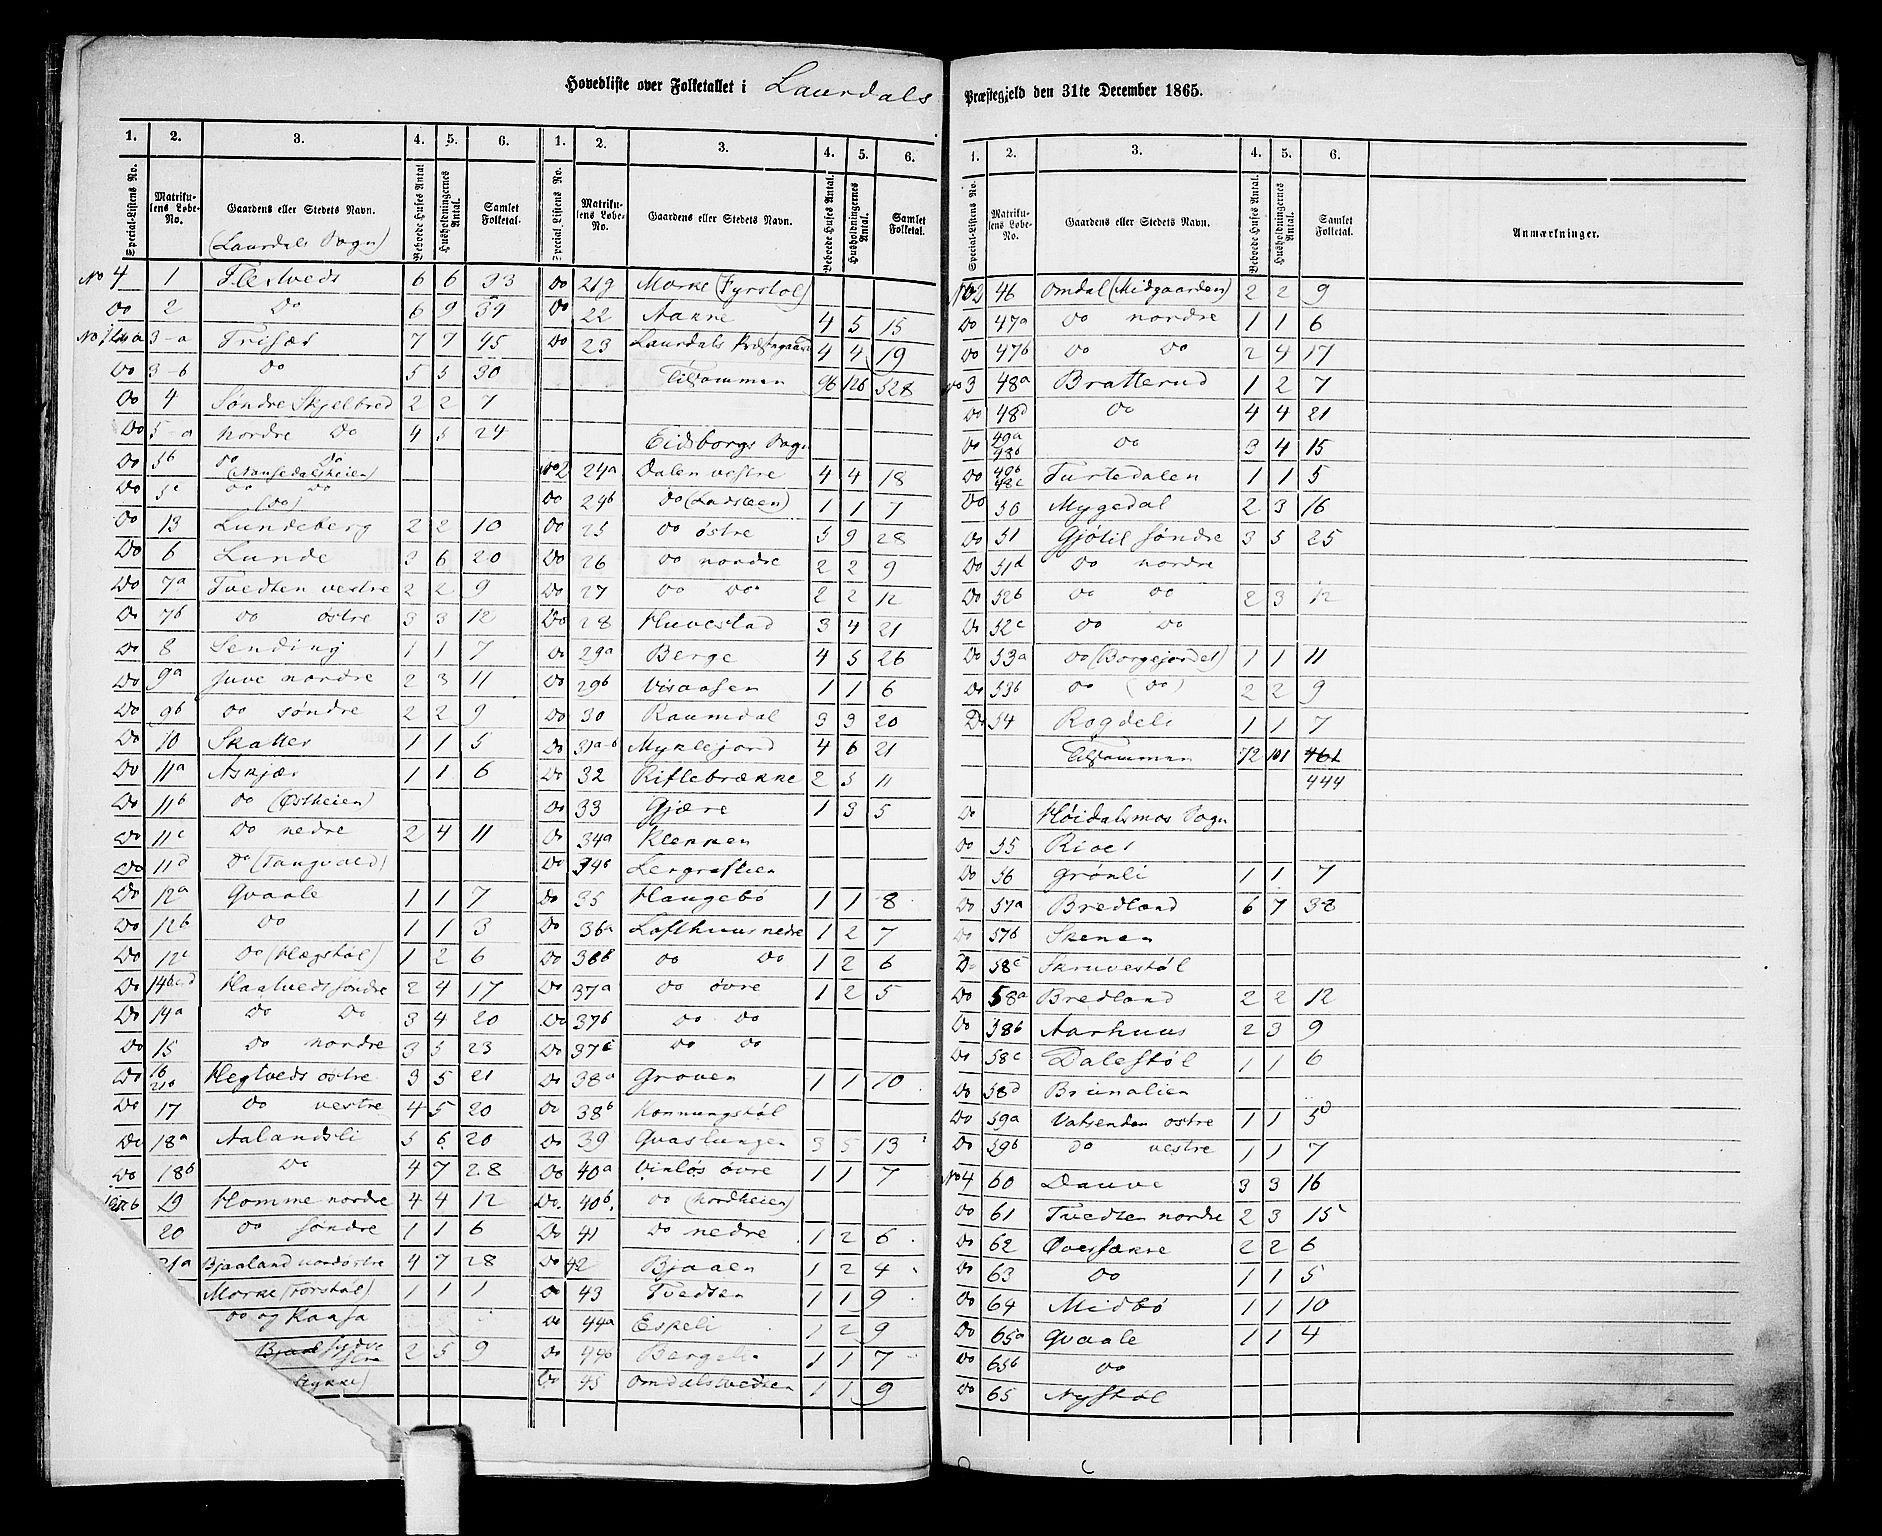 Hovedliste over Folketallet i Laurdals Præstegjeld den 31te December 1865.
1. 2. 3. 4. 5. 6.
Special-Listens No. Matrikulens Løbe-No. Gaardens eller Stedets Navn. Beboede Huses Antal. Husholdningernes Antal. Samlet Folketal.
(Laurdals Sogn)
No 4 1 6 6 33
Do 2 Do 6 9 39
3-a Trisæt 7 7 45
Do 3-b Do 5 5 30
Do 4 Søndre Skjelbred 2 2 7
Do 5-a Nordre Do 4 5 24
Do 5b Do Do
(Nansedalsheien)
Do 5c Do Do
(Do)
Do 13 Lundeberg 2 2 10
Do 6 Lunde 3 6 20
Do 7a Tvedten vestre 2 2 9
Do 7b Do østre 3 3 12
Do 8 Sending 1 1 7
Do 9a Juve nordre 2 3 11
Do 9b Do søndre 2 2 9
Do 10 Skatter 1 1 5
Do 11a Askjær 1 1 6
Do 11b Do (Østheien)
Do 11c Do nedre 2 4 11
Do 11d Do (Tangvald)
Do 12a Qvaale 1 1 7
Do 12b Do 1 1 3
Do 12c Do (Hægstøl) 1 2 6
Do 14bcd Haatveds søndre 2 4 17
Do 14a Do Do 3 4 20
Do 15 Do nordre 3 5 23
Do 16 21b Hegtveds østre 3 5 21
Do 17 Do vestre 4 5 20
Do 18a Aalandsli 5 6 20
Do 18b Do 4 7 28
19 Homme nordre 4 4 12
20 Do søndre 1 1 6
21a Bjaaland nordøstre 4 7 28
Morke (Forstøl) 1 1 1
Do og Kaasa
2 5 9
1. 2. 3. 4. 5. 6.
Special-Listens No. Matrikulens Løbe-No. Gaardens eller Stedets Navn. Beboede Huses Antal. Husholdningernes Antal. Samlet Folketal.
Do 21g Morke (Fyrstøl)
Do 22 Aakre 4 5 15
Do 23 Laurdals Præstegaard 4 4 19
Tilsammen 96 126 528
Eidsborgs Sogn
No 2 24a Dalen vestre 4 4 18
Do 24b Do (Ladsteen) 1 1 7
Do 25 Do østre 5 9 28
Do 26 Do nordre 2 2 9
Do 27 Do Do 2 2 12
Do 28 Huvestad 3 4 21
Do 29a Berge 4 5 26
Do 29b Visaasen 1 1 6
Do 30 Raumdal 3 3 20
Do 31a-b Myklejord 4 6 21
Do 32 Riflebrække 2 5 11
Do 33 Gjære 1 3 5
Do 34a Klekken
Do 34b Lergraften
Do 35 Haugebø 1 1 8
Do 36a Lofthuus nedre 1 2 7
Do 36b Do Do 1 2 6
Do 37a Do øvre 1 2 5
Do 37b Do Do
Do 37c Do Do
Do 38a Groven 1 1 10
Do 38b Konnungstøl
Do 39 Qvaslungen 3 5 13
Do 40a Vinløs øvre 1 1 7
Do. 40b. Do (Nordheien)
Do 41 Do nedre 1 2 6
Do 42 Bjaaen 1 2 4
Do 43 Tvedten 1 1 9
Do 44a Espeli 1 2 9
Do 44b 1 1 7
Do 45 Omdalstvedten 1 1 9
1. 2. 3. 4. 5. 6.
Special-Listens No. Matrikulens Løbe-No. Gaardens eller Stedets Navn. Beboede Huses Antal. Husholdningernes Antal. Samlet Folketal. Anmærkninger.
No 2 46 Omdal (Midgaarden) 2 2 9
Do 47a Do nordre 1 1 6
Do 47b Do Do 2 4 17
No 3 48a Bratterud 1 2 7
Do 48d Do 4 4 21
Do 49a 48b Do 3 4 15
Do 49b 48c Turtedalen 1 1 5
Do 50 Mygedal 2 3 16
Do 51 Gjøtil søndre 3 5 25
Do 51d Do nordre
Do 52b Do Do 2 3 12
Do 52c Do Do
Do 53a Do (Borgejordet) 1 1 11
Do 53b Do (Do) 2 2 9
Do 54 Rogdeli 1 1 7
Tilsammen 72 101 461
444
Do Høidalsmos Sogn
Do 55 Rivel
Do 56 Grønli 1 1 7
Do 57a Bredland 6 7 38
Do 57b Skenen
Do 58c Skruvestøl
Do 58a Bredland 2 2 12
Do 58b Aarhuus 2 3 9
Do 58c Dalestøl 1 1 6
Do 58d Brunalien
Do 59a Vatsenden østre 1 1 5
Do 59b Do vestre 1 1 7
No 4 60 Dauve 3 3 16
Do 61 Tvedten nordre 2 3 15
Do 62 Øvesfækre 2 2 6
Do 63 Do 1 1 5
Do 64 Midbø 1 1 10
Do 65a Qvaale 1 1 4
Do 65b Do
Do 65 Nystøl